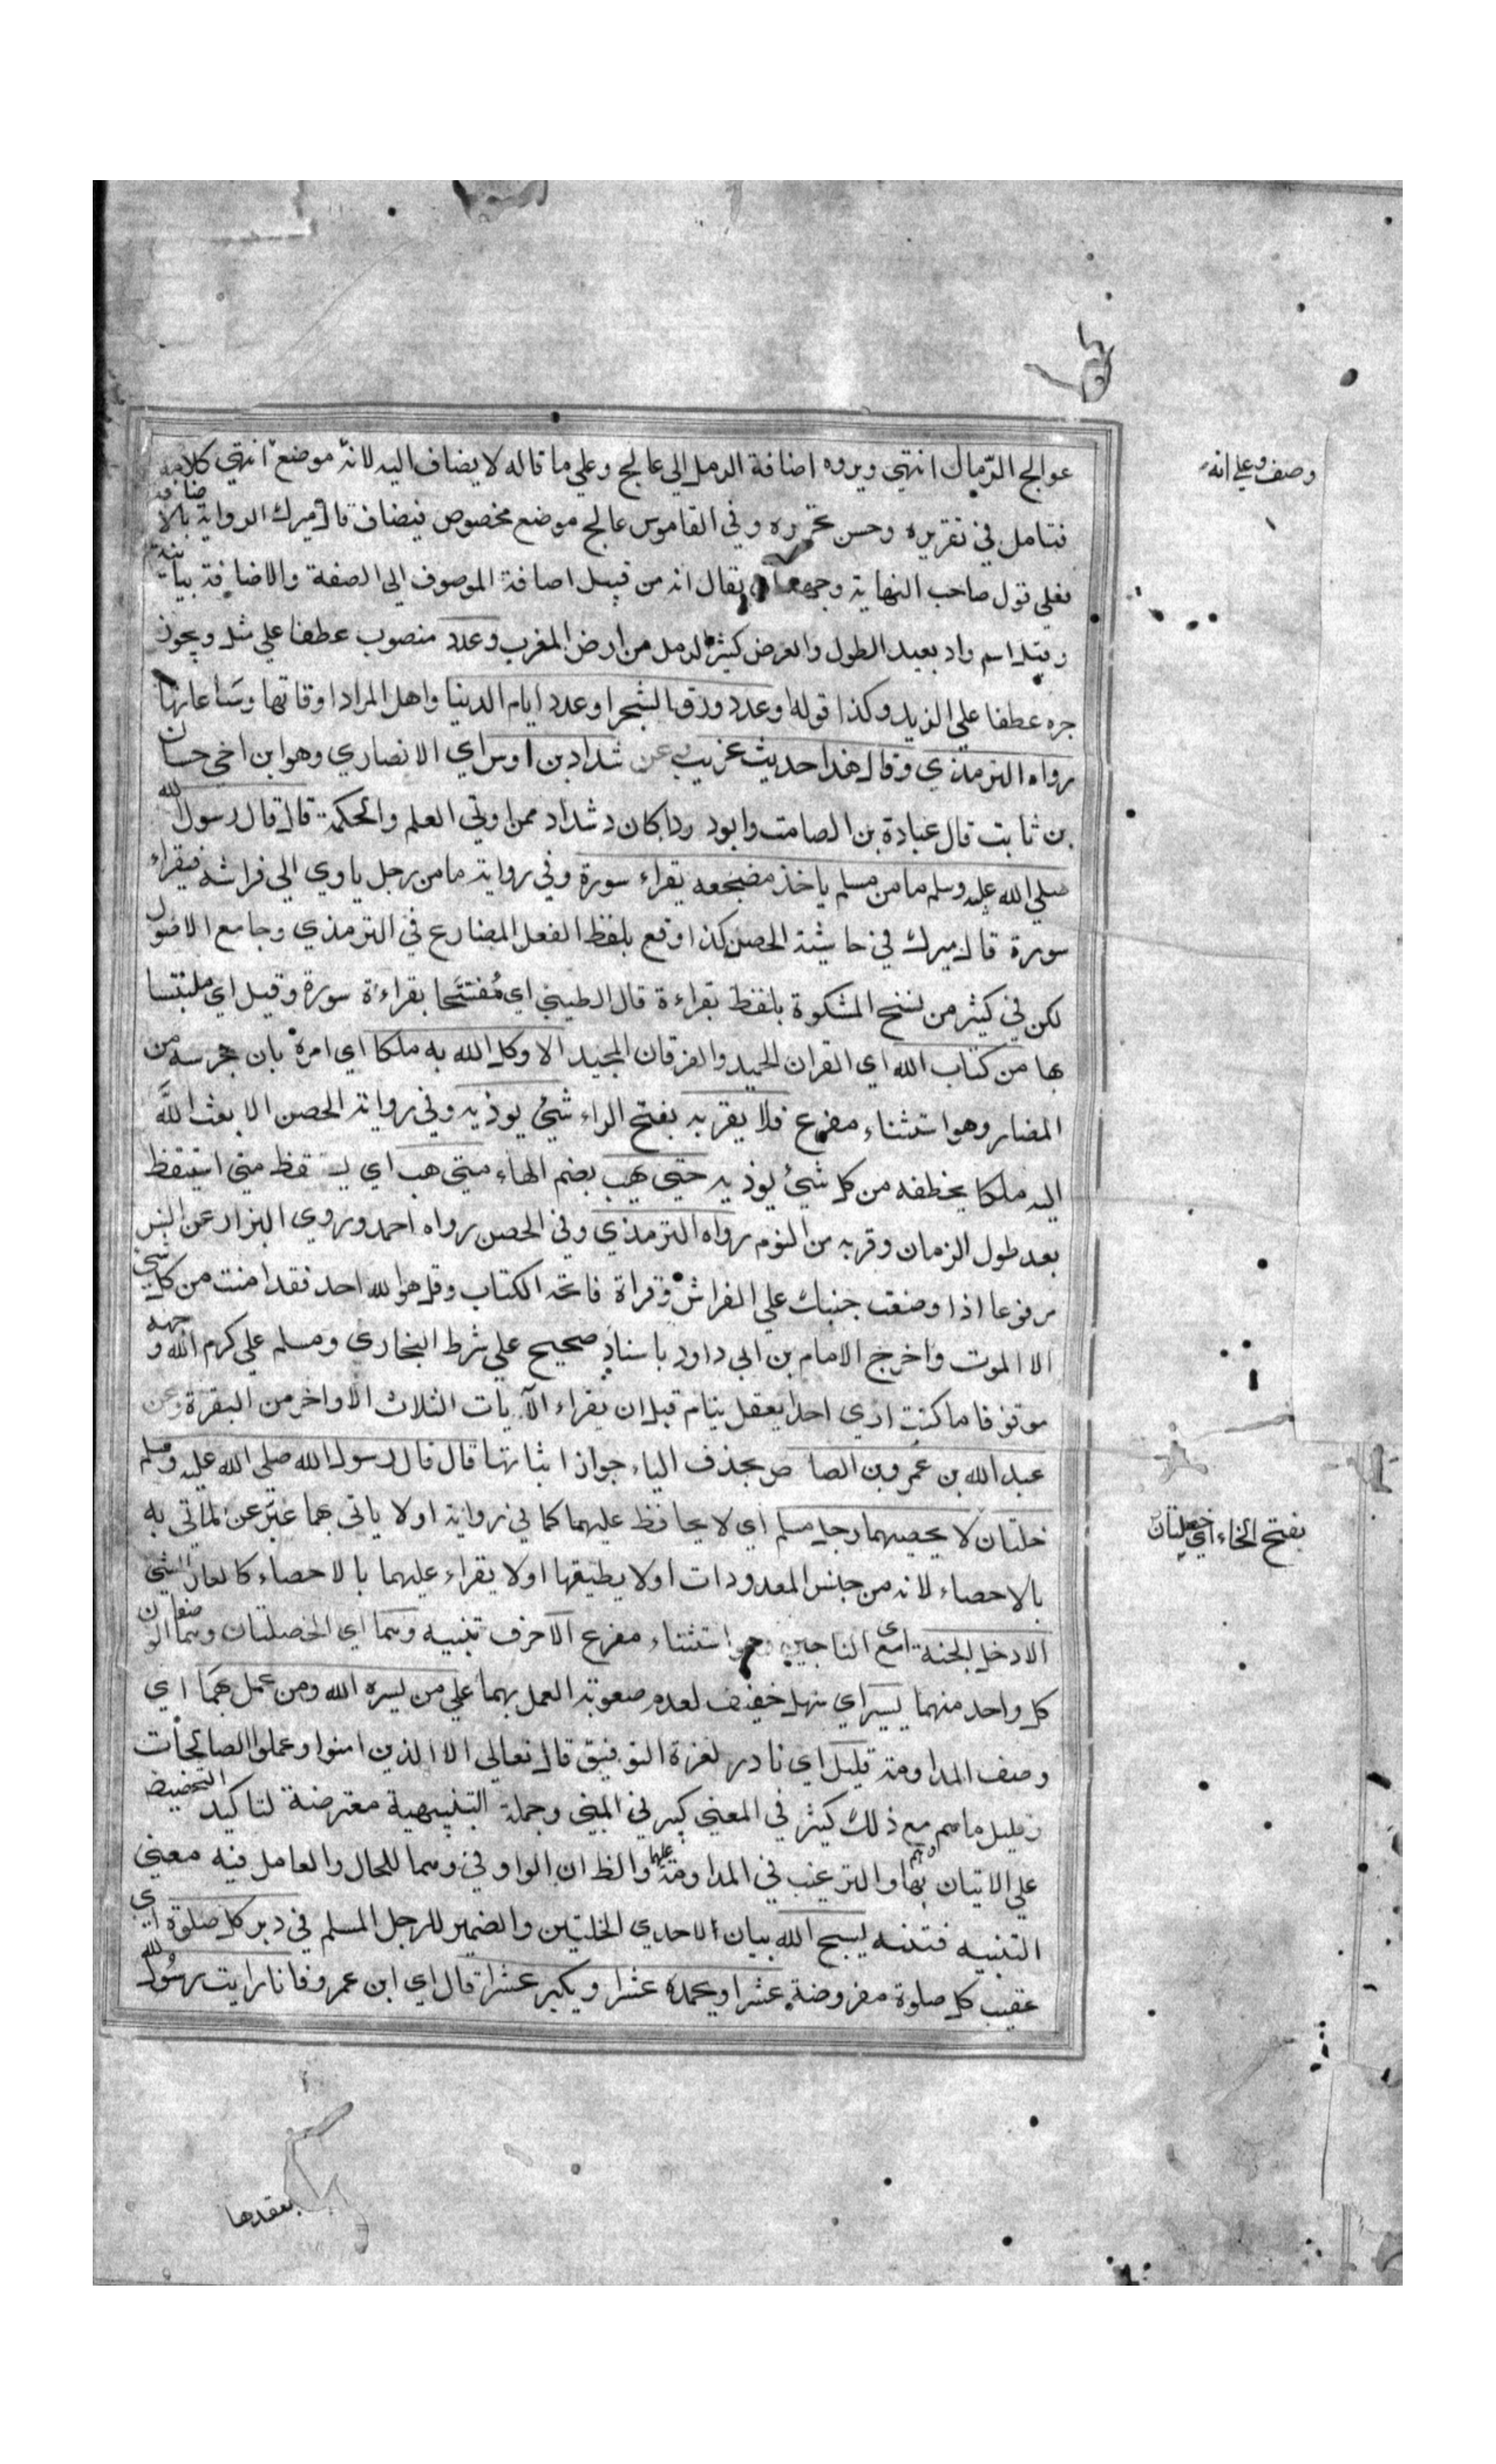 عوالج الرّمال انتهي ويروه اضافة الرمل الي عالج وعلي ما قاله لا يضاف اليه لانه موضع انتهي كلامه
وصف وعلي انه
فتامل في تقريره وحسن تحريره وفي القاموس عالج موضع مخصوص فيضاف قال ميرك الرواية بالاضافة
فعلي قول صاحب النهاية وجهه ان يقال انه من قبيل اضافة الموصوف الي الصفة والاضافة بيانية
وقيل اسم واد بعيد الطول والعرض كثير الرمل من ارض المغرب وعدد منصوب عطفا علي مثل ويجوز
جره عطفا علي الزبد وكذا قوله او عدد ورق الشجر او عدد ايام الدنيا واهل المراد اوقاتها وساعاتها
رواه الترمذي وقال هذا حديث غريب وعن شداد بن اوس اي الانصاري وهو ابن اخي حسان
بن ثابت قال عبادة بن الصامت وابو درداء كان شداد ممن اوتي العلم والحكمة قال قال رسول الله
صلي الله عليه وسلم ما من مسلم ياخذ مضجعه يقراء سورة وفي رواية ما من رجل ياوي الي فراشه فيقراء
سورة قال ميرك في حاشية الحصن كذا وقع بلفظ الفعل المضارع في الترمذي وجامع الاصول
لكن في كثير من نسخ المشكوة بلفظ بقراءة قال الطيبي اي مُفتتحا بقراءة سورة وقيل اي ملتبسا
بها من كتاب الله اي القران الحميد والفرقان المجيد الا وكل الله به ملكا اي امره بان يحرسه من
المضار وهو استثناء مفرع فلا يقربه بفتح الراء شيء يوذيه وفي رواية الحصن الا بعث الله
اليه ملكا يحفظه من كل شيء يوذيه حتي يهب بضم الهاء متي هب اي يستيقظ متي استيقظ
بعد طول الزمان وقربه من النوم رواه الترمذي وفي الحصن رواه احمد وروي البزار عن انس
مرفوعا اذا وضعت جنبك علي الفراش وقراة فاتحة الكتاب وقل هو الله احد فقد امنت من كل شي
الا الموت واخرج الامام بن ابي داود باسناد صحيح علي شرط البخاري ومسلم علي كرم الله وجهه
موقوفا ما كنت اري احدا يعقل ينام قبل ان يقراء الآيات الثلاث الاواخر من البقرة وعن
عبد الله بن عمرو بن العاص بحذف الياء جواز اثباتها قال قال رسول الله صلي الله عليه وسلم
خلتان لا يحصيهما رجل مسلم اي لا يحافظ عليهما كما في رواية او لا ياتي بهما عبّر عن الماتي به
بفتح الخاء اي خصلتان
بالاحصاء لانه من جنس المعدودات او لا يطيقها او لا يقراء عليهما بالاحصاء كالعاد الشي
الا دخل الجنة اي مع الناجين وهو استثناء مفرع الآحرف تنبيه وهما اي الخصلتان وهما الوصفان
كل واحد منهما يسير اي سهل خفيف لعدم صعوبة العمل بهما علي من يسره الله ومن عمل بهما اي
وصف المداومة قليل اي نادر لعزة التوفيق قال تعالي الا الذين امنوا وعملوا الصالحات
وقليل ما هم مع ذلك كثير في المعني كبير في المبني وجملة التنبيهية معترضة لتاكيد التحضيض
علي الاتيان بهما والترغيب في المداومة عليهما والظ ان الواو في وهما للحال والعامل فيه معني
التنبيه فتنبه يسبح الله بيان لاحدي الخلتين والضمير للرجل المسلم في دبر كل صلوة اي
عقيب كل صلوة مفروضة عشرا ويحمده عشرا ويكبر عشرا قال اي ابن عمرو فانا رايت رسول الله
يعقدها